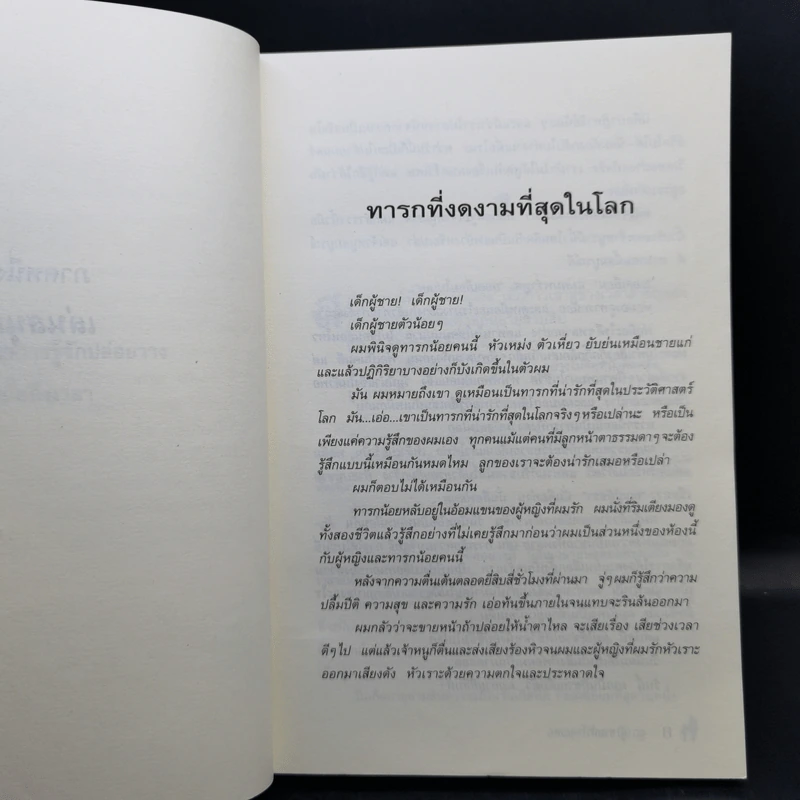 ทารกที่งดงามที่สุดในโลก
เด็กผู้ชาย! เด็กผู้ชาย!
เด็กผู้ชายตัวน้อยๆ
ผมพินิจดูทารกน้อยคนนี้ หัวเหม่ง ตัวเหี่ยว ยับย่นเหมือนชายแก่
และแล้วปฏิกิริยาบางอย่างก็บังเกิดขึ้นในตัวผม
มัน ผมหมายถึงเขา ดูเหมือนเป็นทารกที่น่ารักที่สุดในประวัติศาสตร์
โลก มัน...เอ่อ...เขาเป็นทารกที่น่ารักที่สุดในโลกจริงๆ หรือเปล่านะ หรือเป็น
เพียงแค่ความรู้สึกของผมเอง ทุกคนแม้แต่คนที่มีลูกหน้าตาธรรมดาๆ จะต้อง
รู้สึกแบบนี้เหมือนกันหมดไหม ลูกของเราจะต้องน่ารักเสมอหรือเปล่า
ผมก็ตอบไม่ได้เหมือนกัน
ทารกน้อยหลับอยู่ในอ้อมแขนของผู้หญิงที่ผมรัก ผมนั่งที่ริมเตียงมองดู
ทั้งสองชีวิตแล้วรู้สึกอย่างที่ไม่เคยรู้สึกมาก่อนว่าผมเป็นส่วนหนึ่งของห้องนี้
กับผู้หญิงและทารกน้อยคนนี้
หลังจากความตื่นเต้นตลอดยี่สิบสี่ชั่วโมงที่ผ่านมา จู่ๆ ผมก็รู้สึกว่าความ
ปลื้มปีติ ความสุข และความรัก เอ่อท้นขึ้นภายในจนแทบจะรินล้นออกมา
ผมกลัวว่าจะขายหน้าถ้าปล่อยให้น้ำตาไหล จะเสียเรื่อง เสียช่วงเวลา
ดีๆ ไป แต่แล้วเจ้าหนูก็ตื่นและส่งเสียงร้องหิวจนผมและผู้หญิงที่ผมรักหัวเราะ
ออกมาเสียงดัง หัวเราะด้วยความตกใจและประหลาดใจ